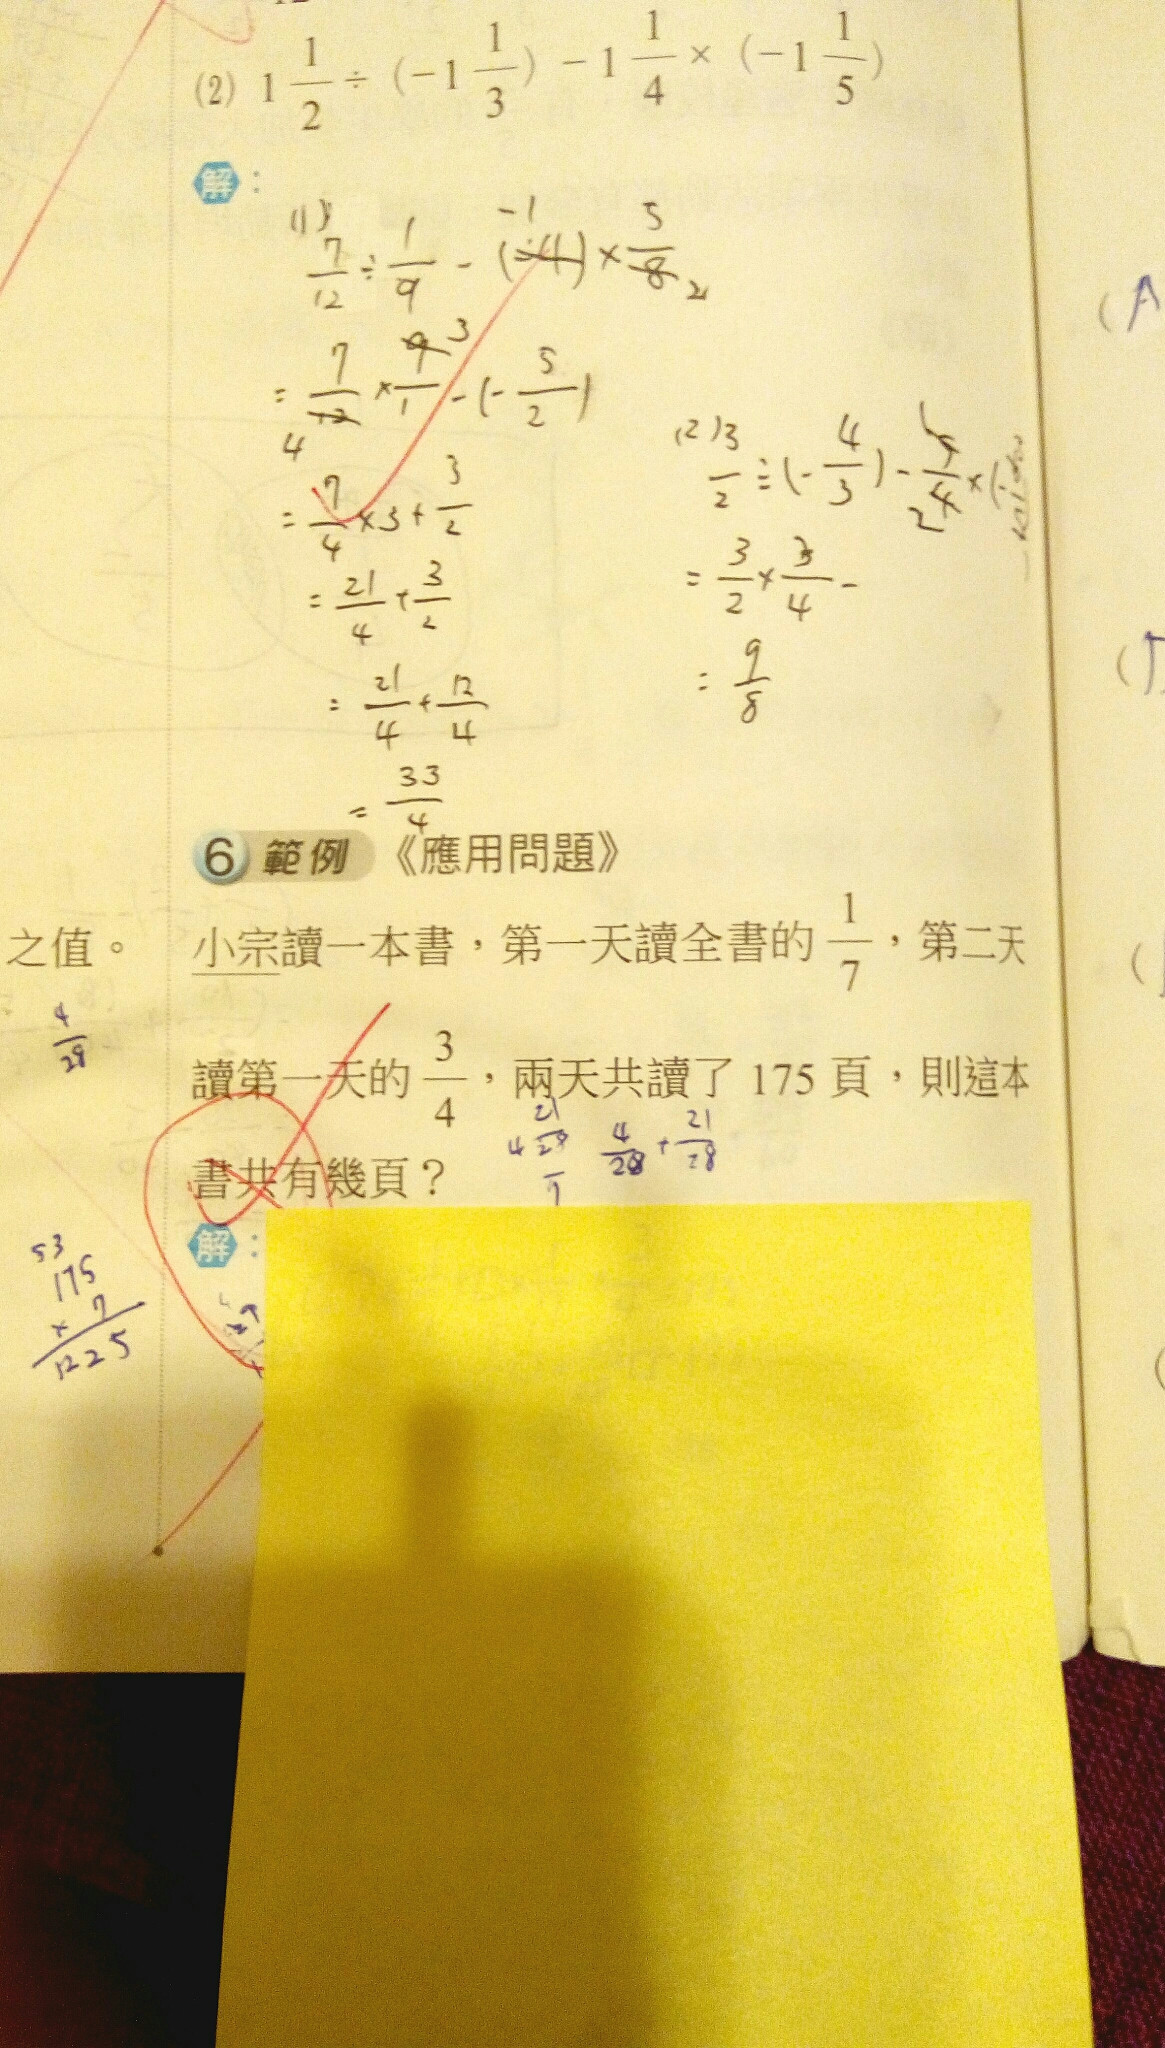 (2) 1 1/2 ÷ (−1 1/3) − 1 1/4 × (−1 1/5)
解：
(1) 7/12 ÷ 1/9 - (-4) × 5/8
-1
2
= 7/12 × 9/1 - (- 5/2)
3
4
= 7/4 × 3 + 3/2
= 21/4 + 3/2
= 21/4 + 12/4
= 33/4
(2) 3/2 ÷ (- 4/3) -
= 3/2 × 3/4 -
= 9/8
6 範例 《應用問題》
之值。
小宗讀一本書，第一天讀全書的 1/7，第二天
讀第一天的 3/4，兩天共讀了 175 頁，則這本
書共有幾頁？
4/28
4/28 + 21/28
解：
53
175
× 7
1225